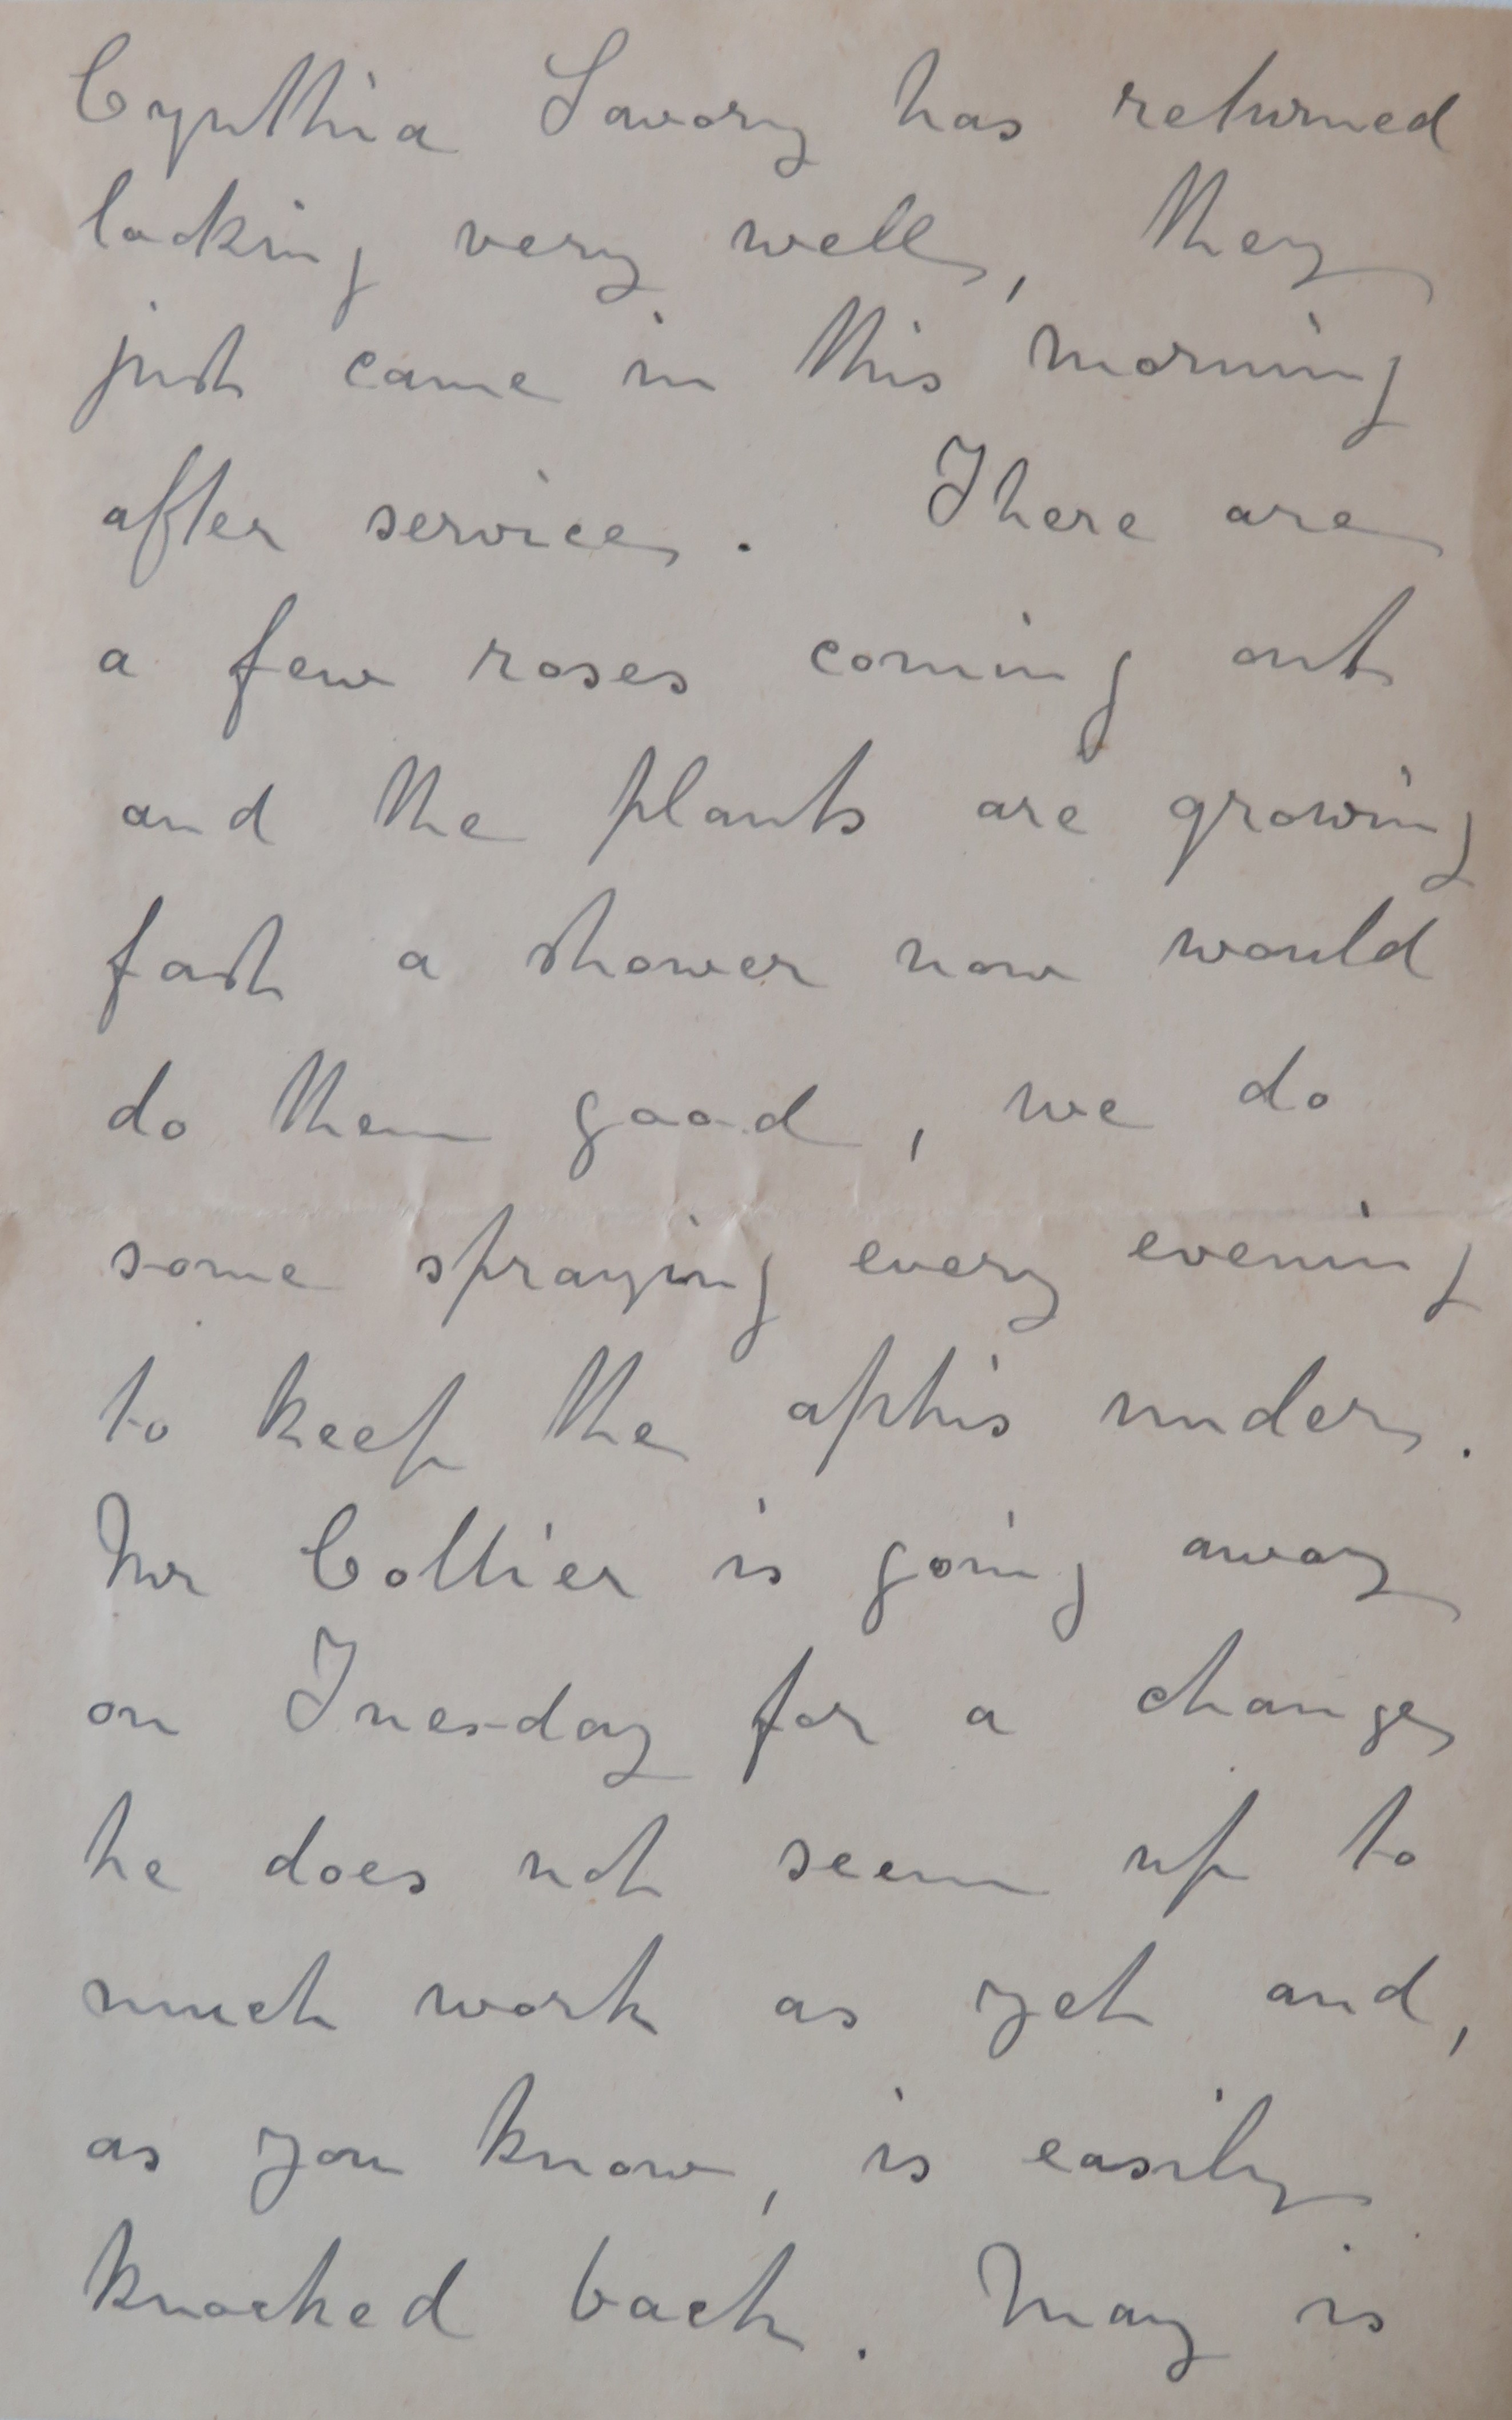 Cynthia Savory has returned
looking very well, they
just came in this morning
after service. There are
a few roses coming out
and the plants are growing
fast a shower now would
do them good, we do
some spraying every evening
to keep the aphis under.
Mr Collier is going away
on Tuesday for a change
he does not seem up to
much work as yet and,
as you know, is easily
knocked back. May is